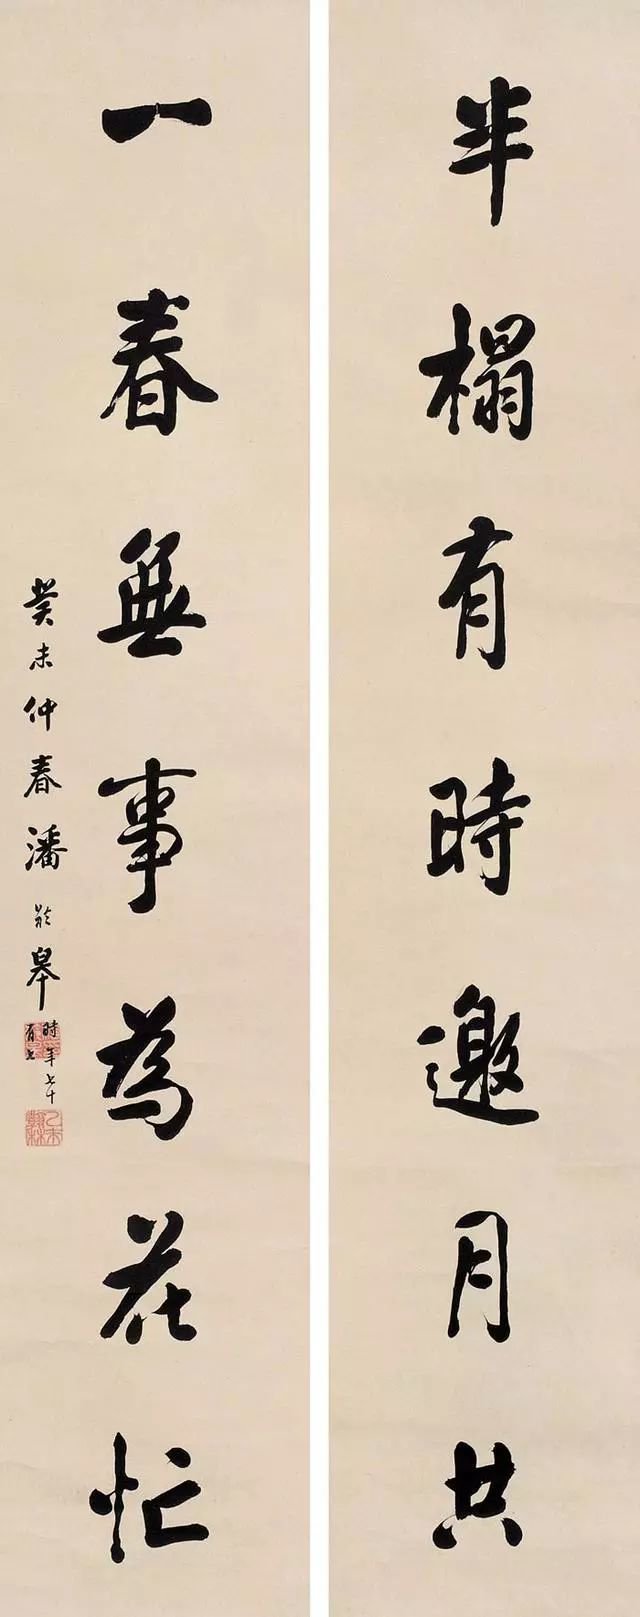 半榻有時邀月共
一春無事為花忙
癸未仲春潘齡皋
時年七十有七